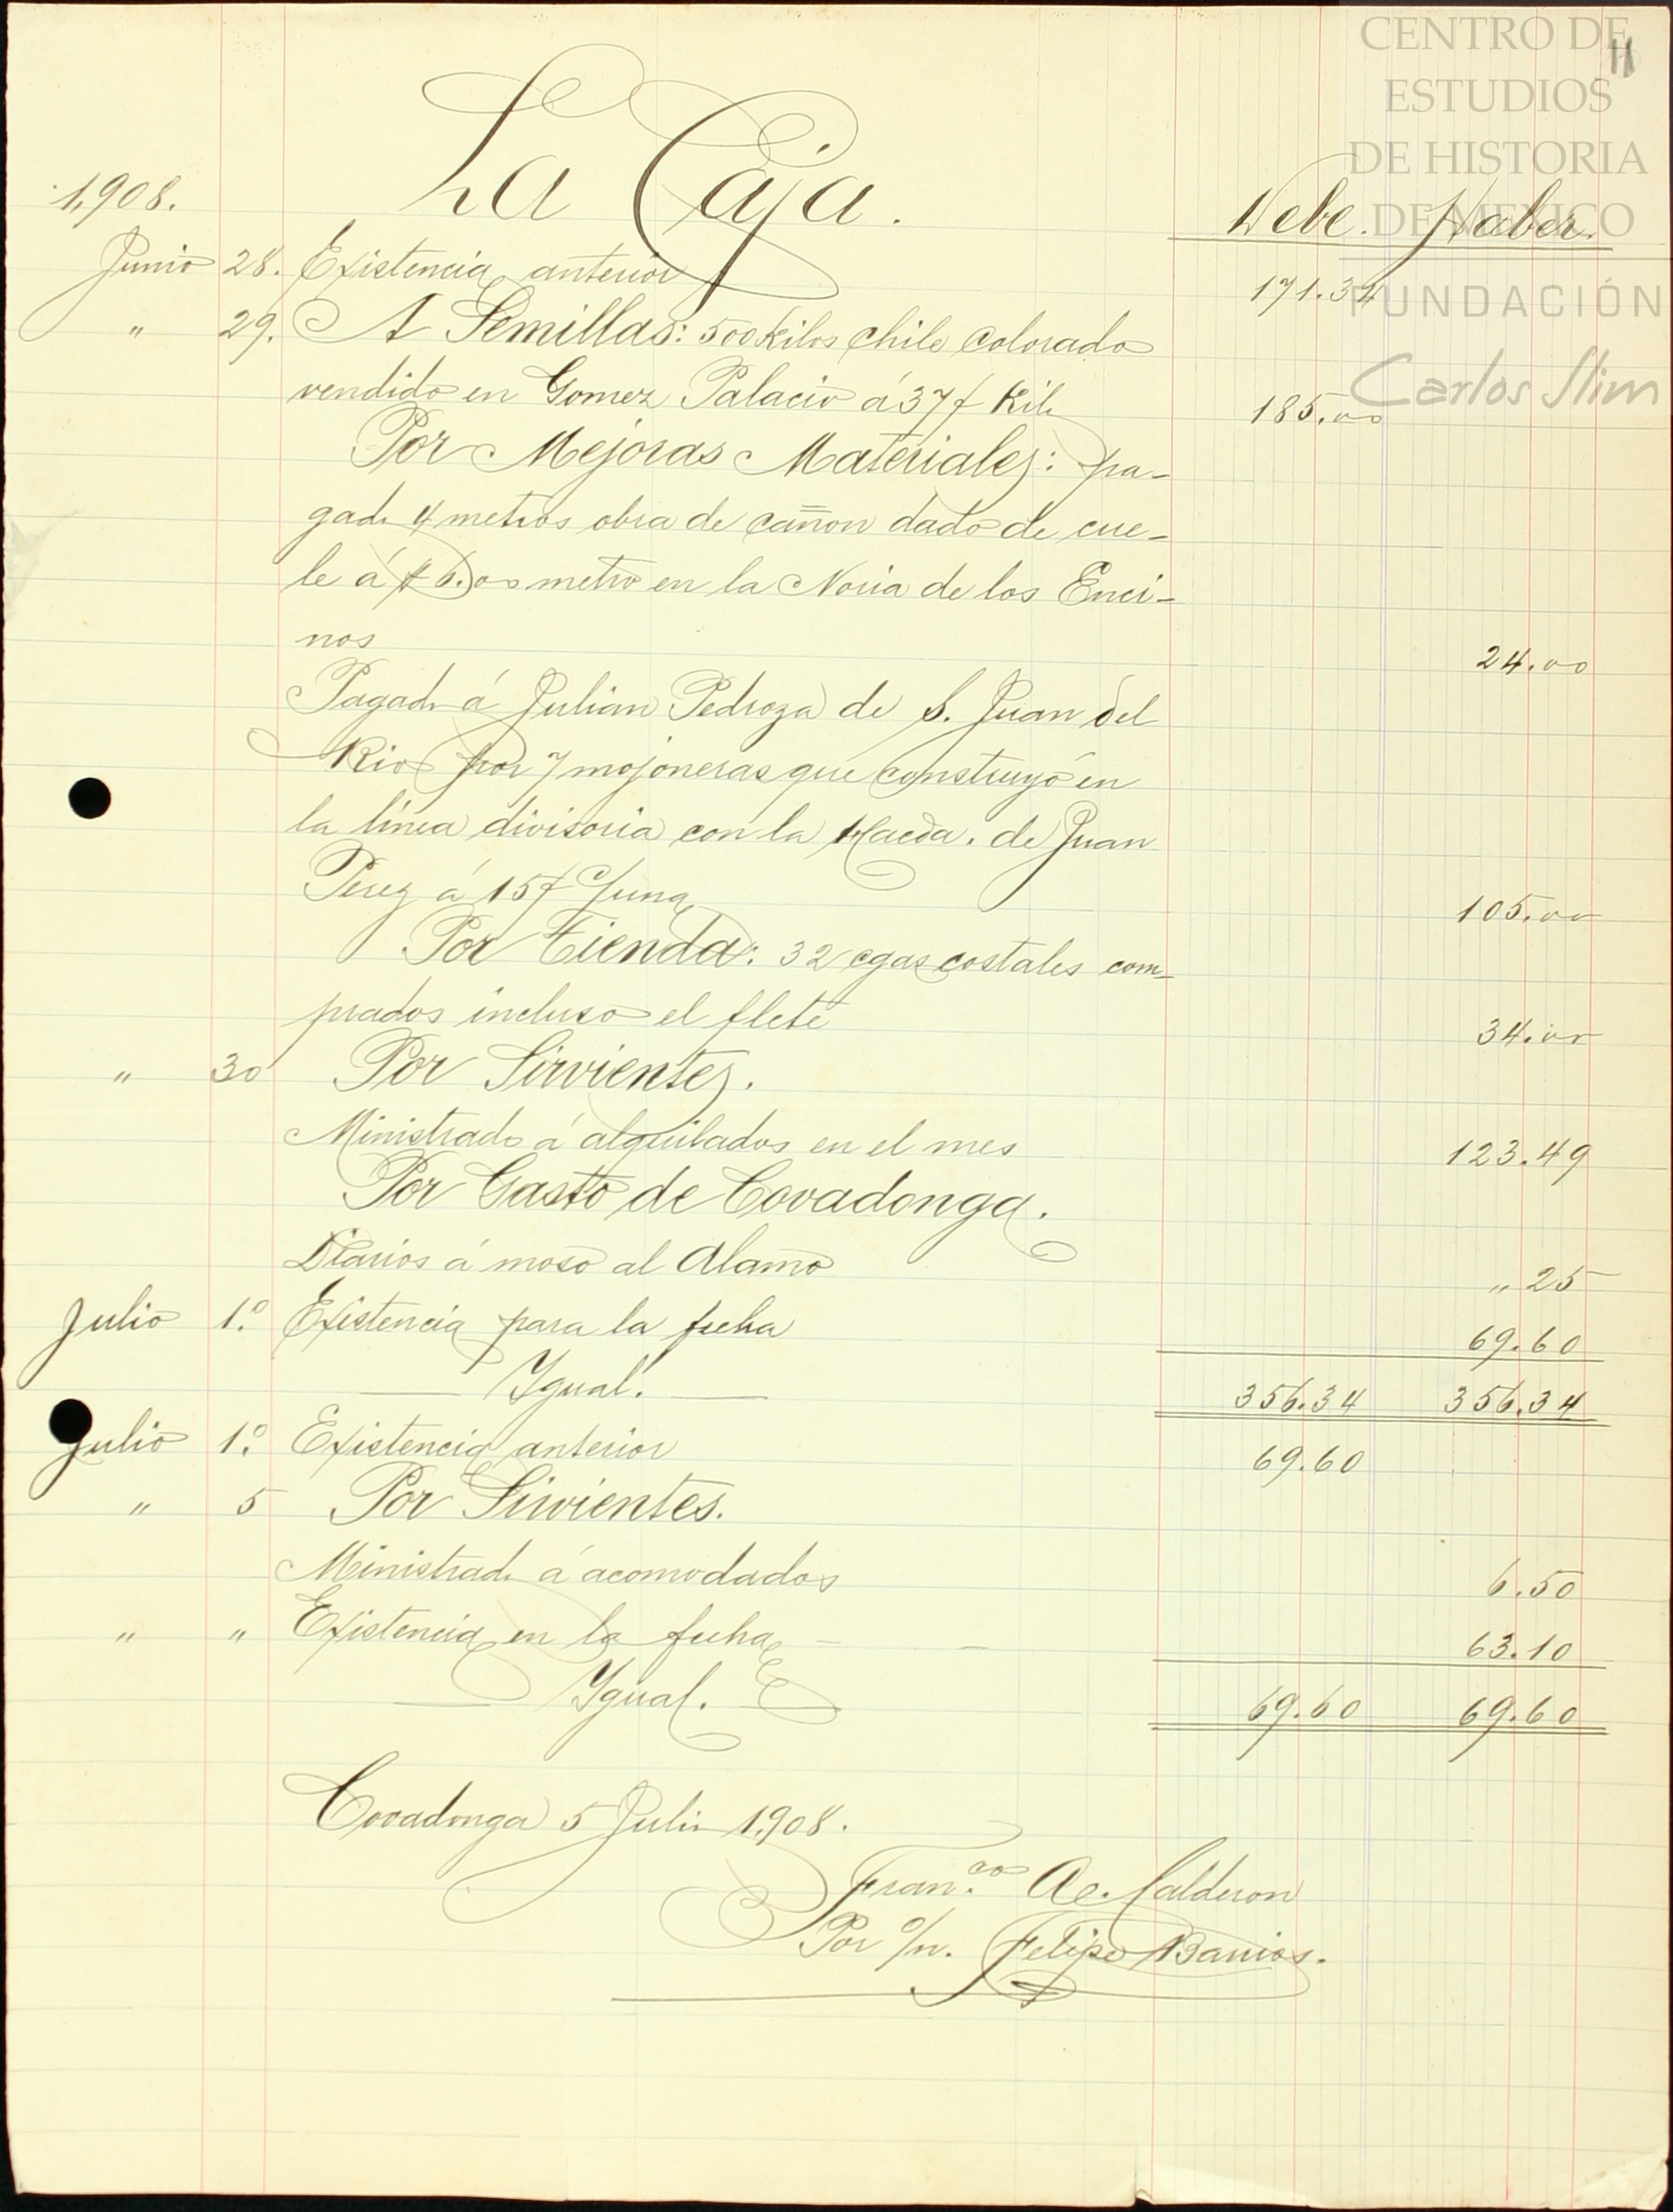 CENTRO DE
ESTUDIOS
DE HISTORIA
DE MEXICO
FUNDACIÓN
Carlos Slim
11
La Caja.
1,908.
Debe. Haber.
Junio 28. Existencia anterior 171.34
" 29. A Semillas: 500 Kilos chile colorado
vendido en Gomez Palacio á 37¢ Kilo 185.00
Por Mejoras Materiales: pa-
gado 4 metros obra de cañon dado de cue-
le á $6.00 metro en la Noria de los Enci-
nos 24.00
Pagado á Julian Pedroza de S. Juan del
Rio por 7 mojoneras que construyó en
la línea divisoria con la Hacda. de Juan
Perez á 15$ c/una 105.00
Por Tienda: 32 cgas costales com-
prados incluso el flete 34.00
" 30 Por Sirvientes.
Ministrado á alquilados en el mes 123.49
Por Gasto de Covadonga.
Diarios á moso al Alamo " 25
Julio 1.º Existencia para la fecha 69.60
Ygual. 356.34 356.34
Julio 1.º Existencia anterior 69.60
" 5 Por Sirvientes.
Ministrado á acomodados 6.50
" " Existencia en la fecha 63.10
Ygual. 69.60 69.60
Covadonga 5 Julio 1,908.
Fran.co A. Calderon
Por o/n. Felipe Barrios.